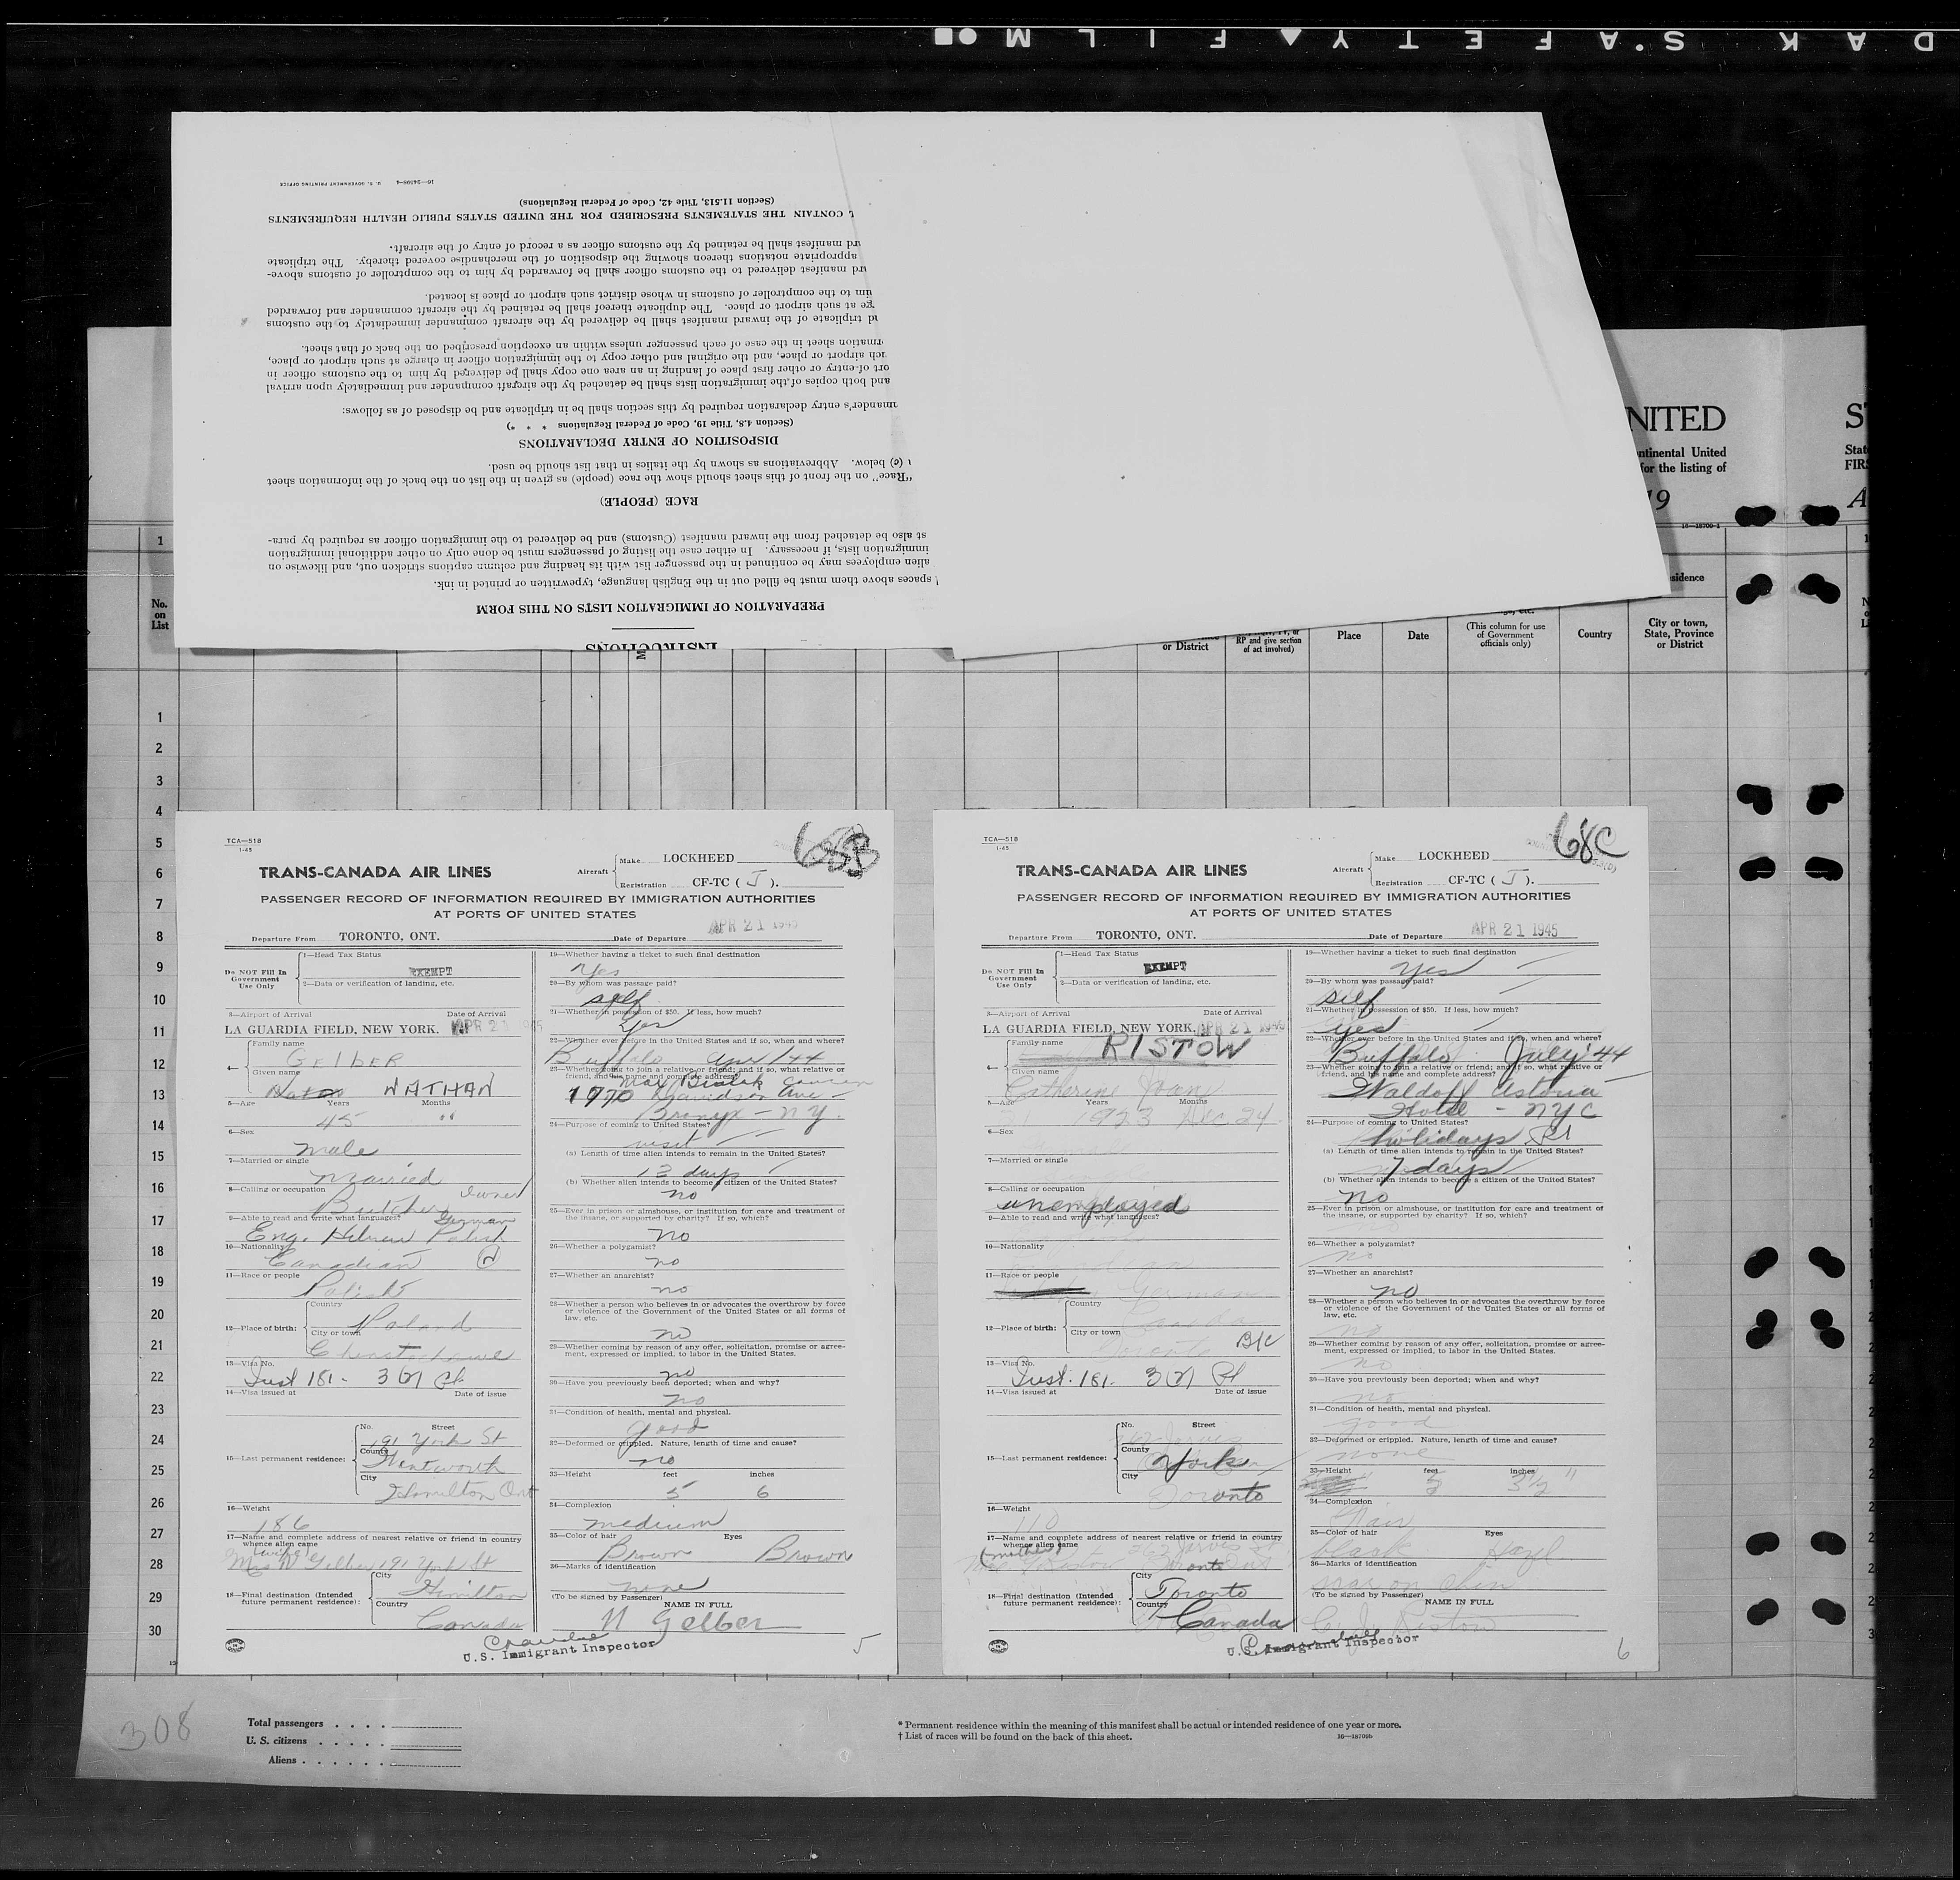 DAK SAFETY FILM
16—24598-4 U. S. GOVERNMENT PRINTING OFFICE
(Section 11.513, Title 42, Code of Federal Regulations)
CONTAIN THE STATEMENTS PRESCRIBED FOR THE UNITED STATES PUBLIC HEALTH REQUIREMENTS
ard manifest shall be retained by the customs officer as a record of entry of the aircraft.
appropriate notations thereon showing the disposition of the merchandise covered thereby. The triplicate
ard manifest delivered to the customs officer shall be forwarded by him to the comptroller of customs above-
um to the comptroller of customs in whose district such airport or place is located.
ge at such airport or place. The duplicate thereof shall be retained by the aircraft commander and forwarded
nd triplicate of the inward manifest shall be delivered by the aircraft commander immediately to the customs
rmation sheet in the case of each passenger unless within an exception prescribed on the back of that sheet.
uch airport or place, and the original and other copy to the immigration officer in charge at such airport or place,
ort of-entry or other first place of landing in an area one copy shall be delivered by him to the customs officer in
and both copies of the immigration lists shall be detached by the aircraft commander and immediately upon arrival
mander's entry declaration required by this section shall be in triplicate and be disposed of as follows:
(Section 4.8, Title 19, Code of Federal Regulations * * *)
DISPOSITION OF ENTRY DECLARATIONS
(c) below. Abbreviations as shown by the italics in that list should be used.
"Race" on the front of this sheet should show the race (people) as given in the list on the back of the information sheet
RACE (PEOPLE)
st also be detached from the inward manifest (Customs) and be delivered to the immigration officer as required by para-
immigration lists, if necessary. In either case the listing of passengers must be done only on other additional immigration
alien employees may be continued in the passenger list with its heading and column captions stricken out, and likewise on
spaces above them must be filled out in the English language, typewritten or printed in ink.
PREPARATION OF IMMIGRATION LISTS ON THIS FORM
INSTRUCTIONS
NITED
ntinental United
for the listing of
19
16—18700-1
S
Stat
FIRS
A
1
No.
on
List
or District
RP and give section
of act involved)
Place
Date
(This column for use
of Government
officials only)
Country
sidence
City or town,
State, Province
or District
1
2
3
4
5
6
7
8
9
10
11
12
13
14
15
16
17
18
19
20
21
22
23
24
25
26
27
28
29
30
TCA—518
1-45
68B
TRANS-CANADA AIR LINES
Aircraft
Make LOCKHEED
Registration CF-TC ( J ).
PASSENGER RECORD OF INFORMATION REQUIRED BY IMMIGRATION AUTHORITIES
AT PORTS OF UNITED STATES
Departure From TORONTO, ONT.
Date of Departure APR 21 1945
Do NOT Fill In
Government
Use Only
1—Head Tax Status
EXEMPT
2—Data or verification of landing, etc.
3—Airport of Arrival Date of Arrival
LA GUARDIA FIELD, NEW YORK. APR 21 1945
4— Family name
GELBER
Given name
NATHAN
5—Age Years Months
45
6—Sex
male
7—Married or single
Married
8—Calling or occupation
Butcher owner
9—Able to read and write what languages? German
Eng. Hebrew Polish
10—Nationality
Canadian
11—Race or people
Polish
12—Place of birth:
Country
Poland
City or town
13—Visa No.
Inst 181-
14—Visa issued at Date of issue
15—Last permanent residence:
No. Street
191 York St
County
Wentworth
City
Hamilton Ont
16—Weight
186
17—Name and complete address of nearest relative or friend in country
whence alien came
(wife)
Mrs N Gelber 191 York St
18—Final destination (Intended
future permanent residence):
City
Hamilton
Country
Canada
19—Whether having a ticket to such final destination
Yes
20—By whom was passage paid?
self
21—Whether in possession of $50. If less, how much?
Yes
22—Whether ever before in the United States and if so, when and where?
Buffalo
23—Whether going to join a relative or friend; and if so, what relative or
friend, and his name and complete address?
Max Bialek cousin
1970 Davidson Ave -
Bronyx - N Y.
24—Purpose of coming to United States?
visit
(a) Length of time alien intends to remain in the United States?
13 days
(b) Whether alien intends to become a citizen of the United States?
no
25—Ever in prison or almshouse, or institution for care and treatment of
the insane, or supported by charity? If so, which?
no
26—Whether a polygamist?
no
27—Whether an anarchist?
no
28—Whether a person who believes in or advocates the overthrow by force
or violence of the Government of the United States or all forms of
law, etc.
no
29—Whether coming by reason of any offer, solicitation, promise or agree-
ment, expressed or implied, to labor in the United States.
no
30—Have you previously been deported; when and why?
no
31—Condition of health, mental and physical.
good
32—Deformed or crippled. Nature, length of time and cause?
no
33—Height feet inches
5 6
34—Complexion
medium
35—Color of hair Eyes
Brown Brown
36—Marks of identification
none
(To be signed by Passenger) NAME IN FULL
N Gelber
U.S. Immigrant Inspector
5
TCA—518
1-45
68C
TRANS-CANADA AIR LINES
Aircraft
Make LOCKHEED
Registration CF-TC ( J ).
PASSENGER RECORD OF INFORMATION REQUIRED BY IMMIGRATION AUTHORITIES
AT PORTS OF UNITED STATES
Departure From TORONTO, ONT.
Date of Departure APR 21 1945
Do NOT Fill In
Government
Use Only
1—Head Tax Status
EXEMPT
2—Data or verification of landing, etc.
3—Airport of Arrival Date of Arrival
LA GUARDIA FIELD, NEW YORK. APR 21 1945
4— Family name
RISTOW
Given name
Catherine Joan
5—Age Years Months
1923 Dec 24
6—Sex
7—Married or single
8—Calling or occupation
unemployed
9—Able to read and write what languages?
10—Nationality
Canadian
11—Race or people
German
12—Place of birth:
Country
Canada
City or town
Toronto B/C
13—Visa No.
Inst: 181.
14—Visa issued at Date of issue
15—Last permanent residence:
No. Street
262 Jarvis
County
York
City
Toronto
16—Weight
110
17—Name and complete address of nearest relative or friend in country
whence alien came
(mother) 262 Jarvis St
Toronto Ont
18—Final destination (Intended
future permanent residence):
City
Toronto
Country
Canada
19—Whether having a ticket to such final destination
yes
20—By whom was passage paid?
self
21—Whether in possession of $50. If less, how much?
yes
22—Whether ever before in the United States and if so, when and where?
Buffalo July '44
23—Whether going to join a relative or friend; and if so, what relative or
friend, and his name and complete address?
Waldorf Astoria
Hotel - NYC
24—Purpose of coming to United States?
holidays
(a) Length of time alien intends to remain in the United States?
7 days
(b) Whether alien intends to become a citizen of the United States?
no
25—Ever in prison or almshouse, or institution for care and treatment of
the insane, or supported by charity? If so, which?
26—Whether a polygamist?
no
27—Whether an anarchist?
no
28—Whether a person who believes in or advocates the overthrow by force
or violence of the Government of the United States or all forms of
law, etc.
no
29—Whether coming by reason of any offer, solicitation, promise or agree-
ment, expressed or implied, to labor in the United States.
no
30—Have you previously been deported; when and why?
no
31—Condition of health, mental and physical.
good
32—Deformed or crippled. Nature, length of time and cause?
none
33—Height feet inches
5 3½ "
34—Complexion
Fair
35—Color of hair Eyes
black Hazel
36—Marks of identification
scar on chin
(To be signed by Passenger) NAME IN FULL
C J Ristow
U.S. Immigrant Inspector
6
308
Total passengers . . . .
U. S. citizens . . . . .
Aliens . . . . . .
* Permanent residence within the meaning of this manifest shall be actual or intended residence of one year or more.
† List of races will be found on the back of this sheet.
16—18700b